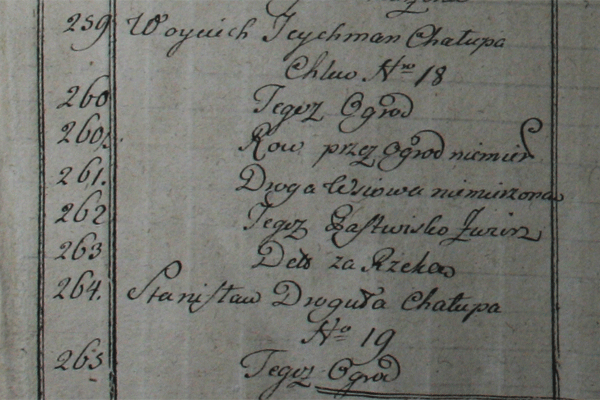 259 Woyciech Teychman Chałupa
Chlew Nro 18
260 Tegoż Ogrod
260½ Row przez Ogrod niemier
261. Droga Wsiowa niemierzona
262 Tegoż Pastwisko
263 Deto za Rzeka
264. Stanisław Droguła Chałupa
No 19
265 Tegoż Ogrod